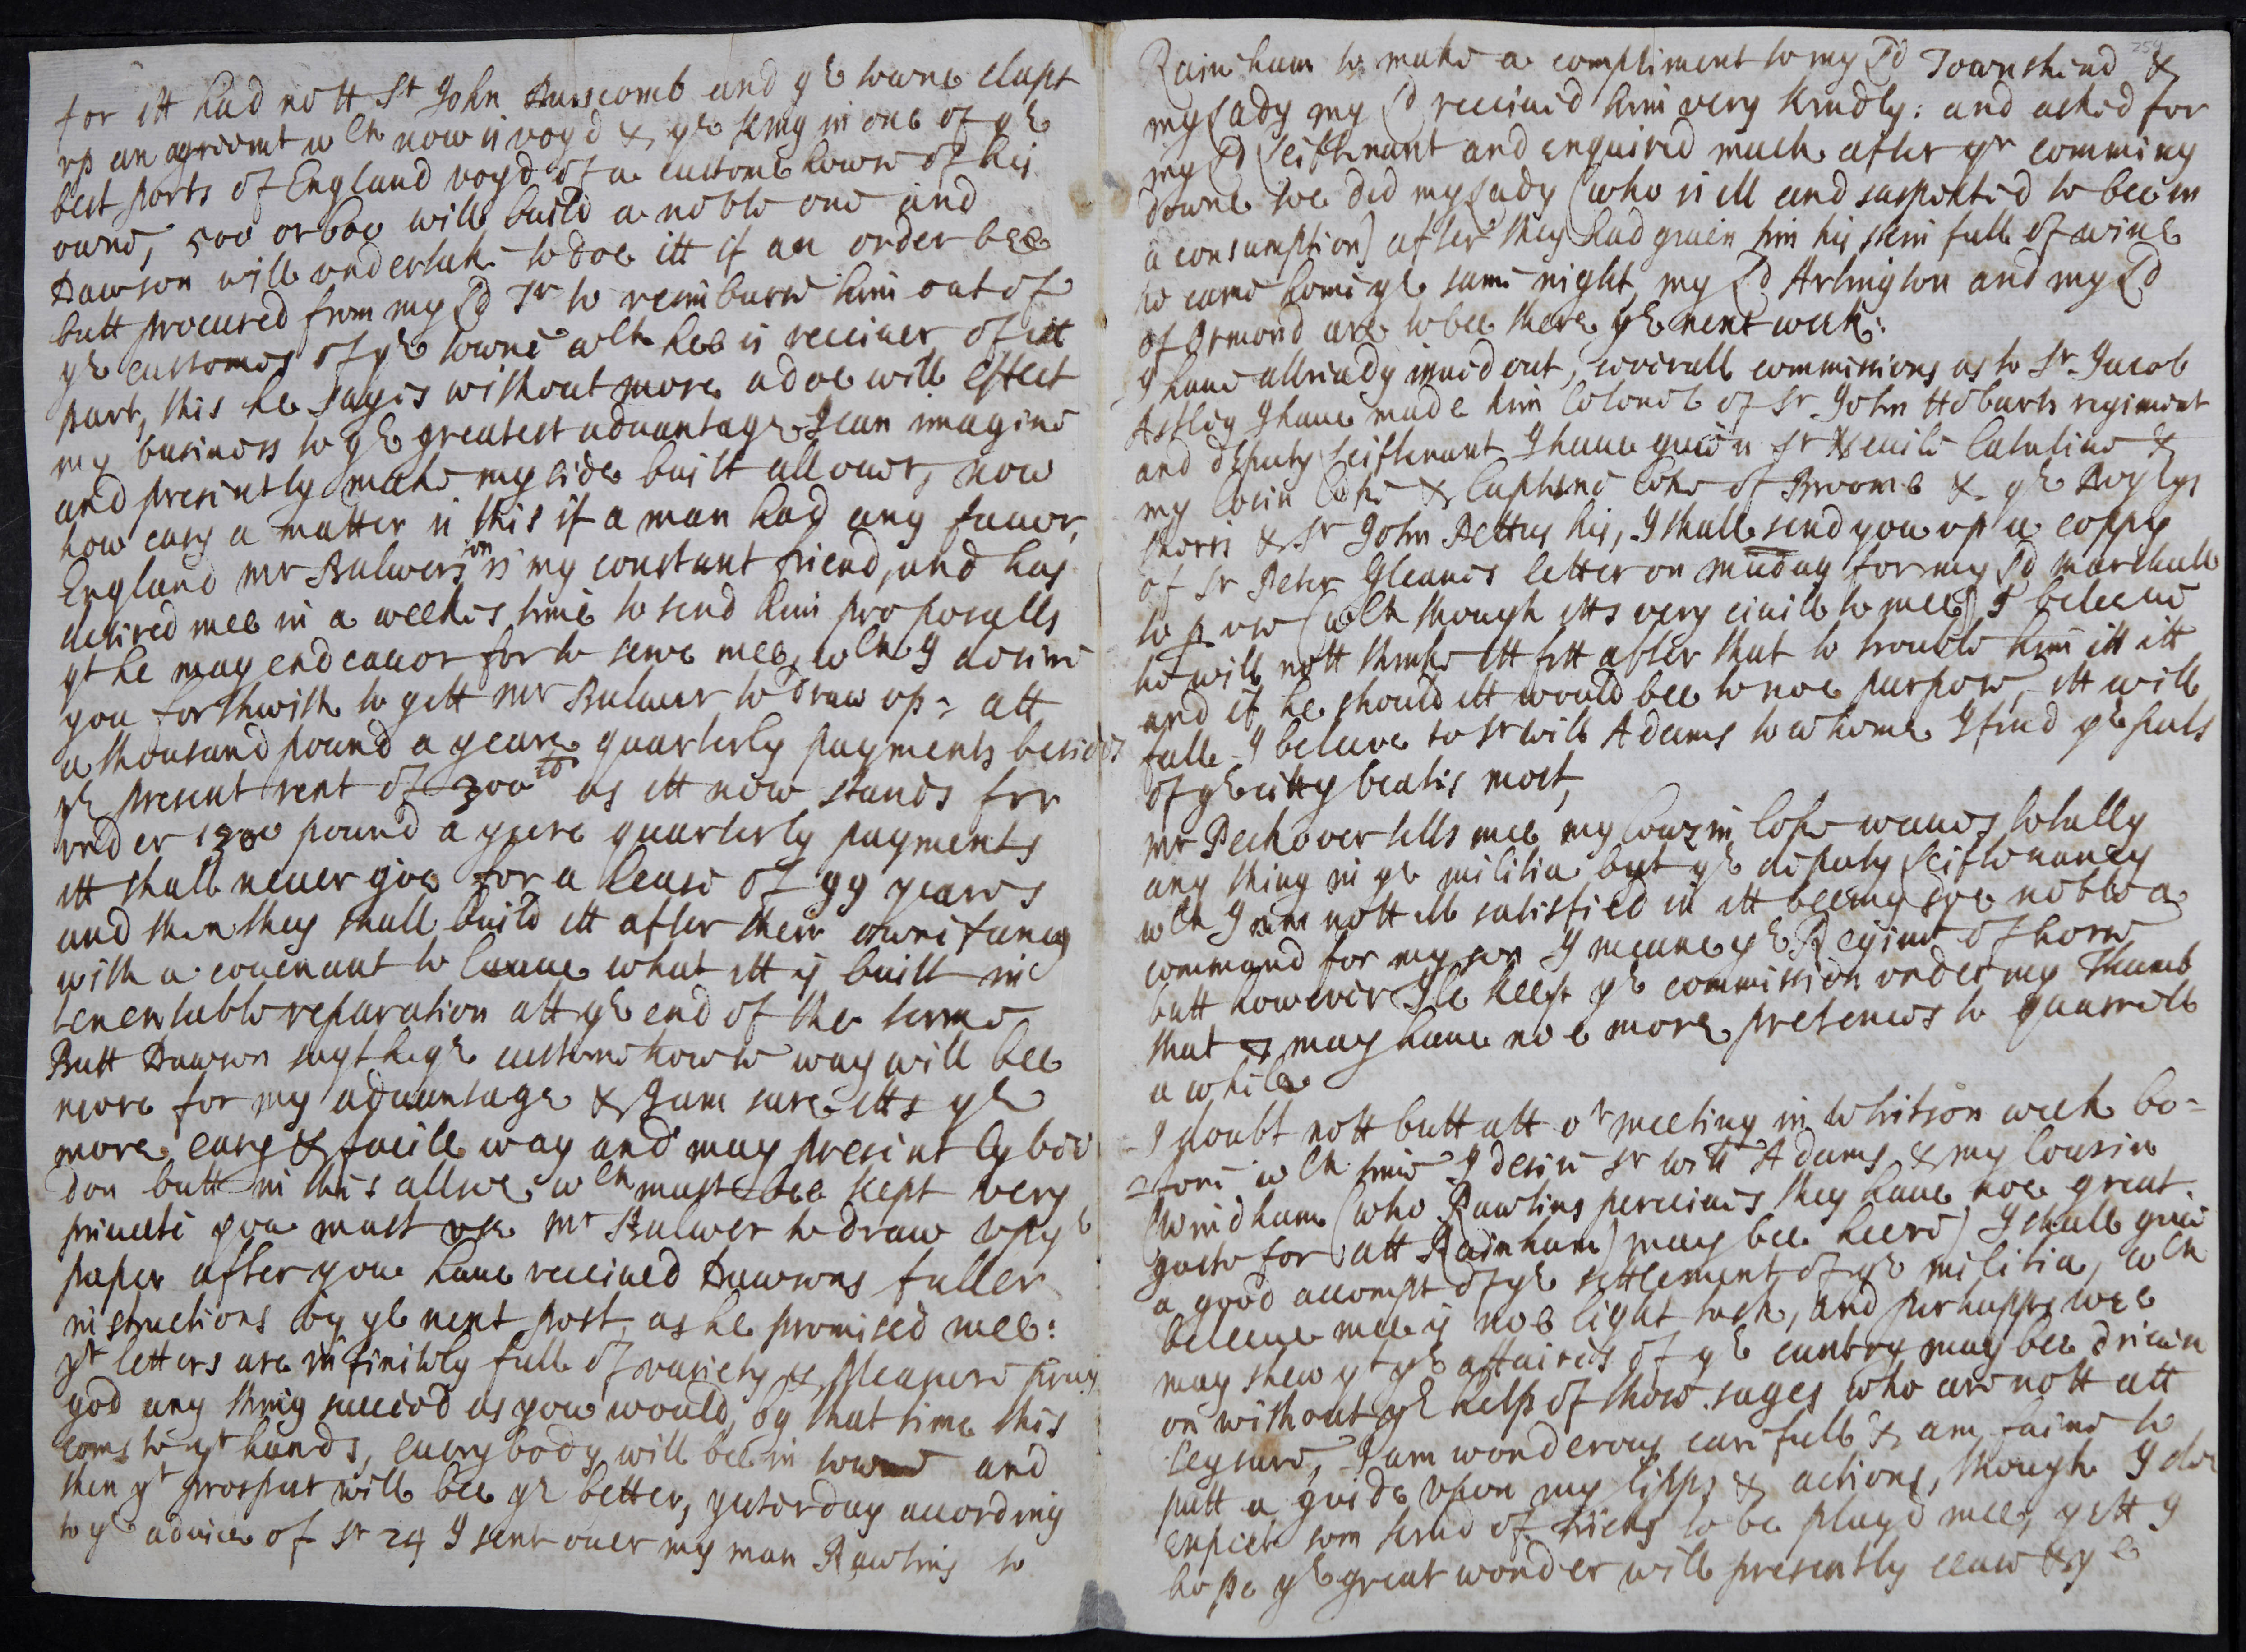 for itt had nott Sr John Duncomb and ye towne clapt
up an agriemt wch now is voyd & ye king in one of ye
best ports of England voyd of a custome howse of his
owne, 500 or 600 will build a noble one and
Dawson will undertake to doe itt if an order bee
butt procured from my Ld Tr to reimburse him out of
ye customes of ye towne wch hee is receiver of itt
part, this he sayes without more adoe will effect
my business to ye greatest advantage I can imagine
and presintly make my side built all over, now
how easy a matter is this if a man had any favor,
England mr Bulwers son is my constant friend, and has
desired mee in a weekes time to send him proposalls
yt he may endeavor for to serve mee, wch I desire
you forthwith to gett mr Bulwer to draw up: att
a thousand pound a yeare quarterly payments besides
ye present rent of 300 as itt now stands for
under 1300 pound a yeere quarterly payments
itt shall never goe for a lease of 99 years
and then they shall build itt after their owne fancy
with a covenant to leave what itt is built in
tenentable reparation att ye end of the terme
Butt Dawson sayth ye custome howse way will bee
more for my advantage & I am sure itts ye
more easy & facile way and may presintly bee
don butt in this allsoe wch must bee kept very
privete you must use mr Bulwer to draw up ye
paper after you have received Dawsons fuller
instructions by ye next post, as he promised mee:
yr letters are infinitely full of variety & pleasure pray
god any thing succeed as you would, by that time this
coms to yr hands, every body will bee in towne and
then yr prospect will bee ye better, yesterday according
to ye advice of Sr 24 I sent over my man Rawlins to
259
Rainham to make a compliment to my Ld Townshend &
my Lady my Ld received him very kindly: and asked for
my Ld Leiftenant and enquired much after yr comming
downe soe did my Lady (who is ill and suspected to bee in
a consumption) after they had given him his skin full of wine
he came home ye same night, my Ld Arlington and my Ld
of Ormond are to bee there ye next week:
I have allready issued out, severall commissions as to Sr Jacob
Astley I have made him Colonel of Sr John Hobarts regiment
and deputy Leiftenant I have given Sr Nevile Cataline &
my Cosin Coke & Captaine Coke of Broome & ye Doyleys
theirs & Sr John Pettus his, I shall send you up a coppy
of Sr Peter Gleanes letter on munday for my Ld Marshall
to peruse (wch though itts very civill to mee) I beleeve
he will nott thinke itt fitt after that to trouble him itt itt
and if he should itt would bee to noe purpose, itt will
fall I beleeve to Sr Will Adams to whome I find ye puls
of ye citty beates most,
mr Peckover tells mee my Couzin Coke waves totally
any thing in ye militia but ye deputy Leiftenancy
wch I am nott ill satisfied in itt beeing soe noble a
command for my son I meane ye Regimt of horse
butt however Ile keepe ye commission under my thumb
that & may have noe more pretences to quarrell
a while
I doubt nott butt att or meeting in Whitson week be-
=fore wch time I desire Sr Will Adams & my Cousin
Windham (who Rawlins perceives they have noe great
gusto for att Rainham) may bee heere) I shall give
a good accompt of ye settlement of ye militia, wch
beleeve mee is noe light task, and perhapps wee
may shew yt ye affaires of ye cuntry may bee driven
on without ye help of those sages who are nott att
leysure, I am wonderous carefull & am faine to
putt a guide upon my lipps & actions, though I doe
expect som kind of tricks to be playd mee, yett I
hope ye great wonder will presently ceas & ye